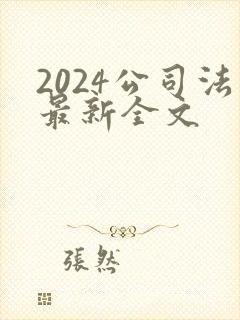 2024公司法
最新全文
張然